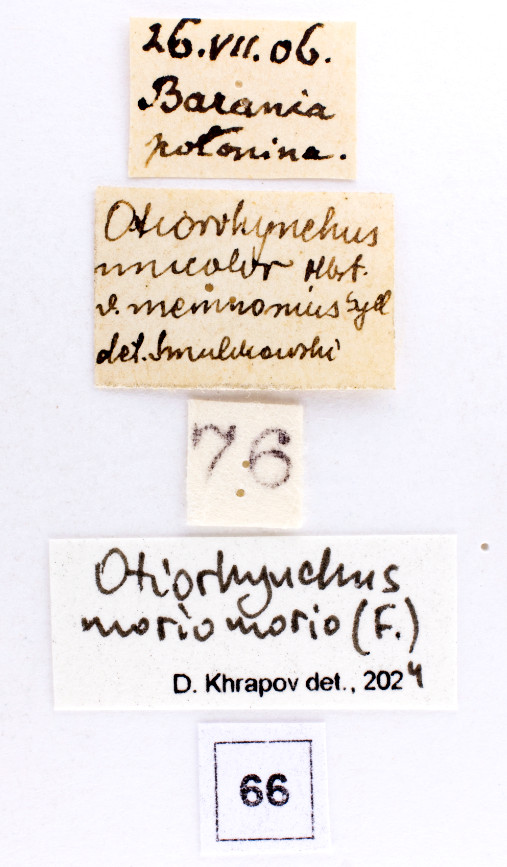 26.VII.06.
Barania
połonina.
Otiorrhynchus
unicolor Hbst.
v. memnonius Gyll
det. Smulikowski
76
Otiorhynchus
morio morio (F.)
D. Khrapov det., 2024
66